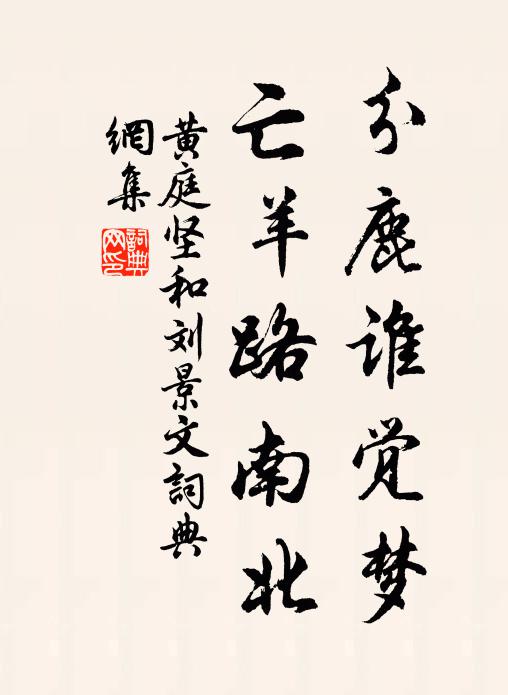 分鹿谁觉梦
亡羊路南北
黄庭坚和刘景文詞典
網集
詞典
网印